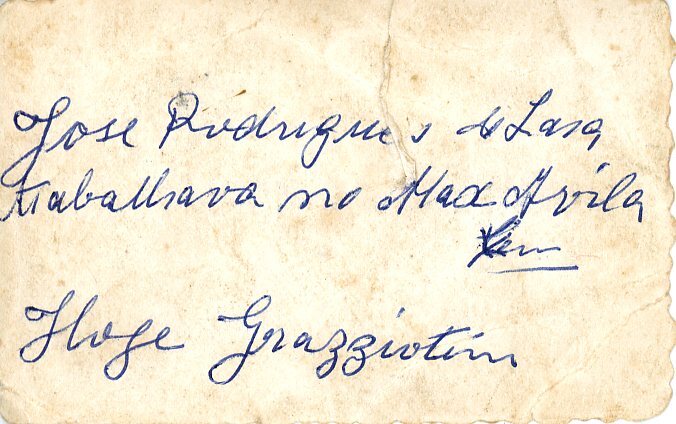 Jose Rodrigues de Lasa
trabalhava no Max Avila
Hoje Grazziotin